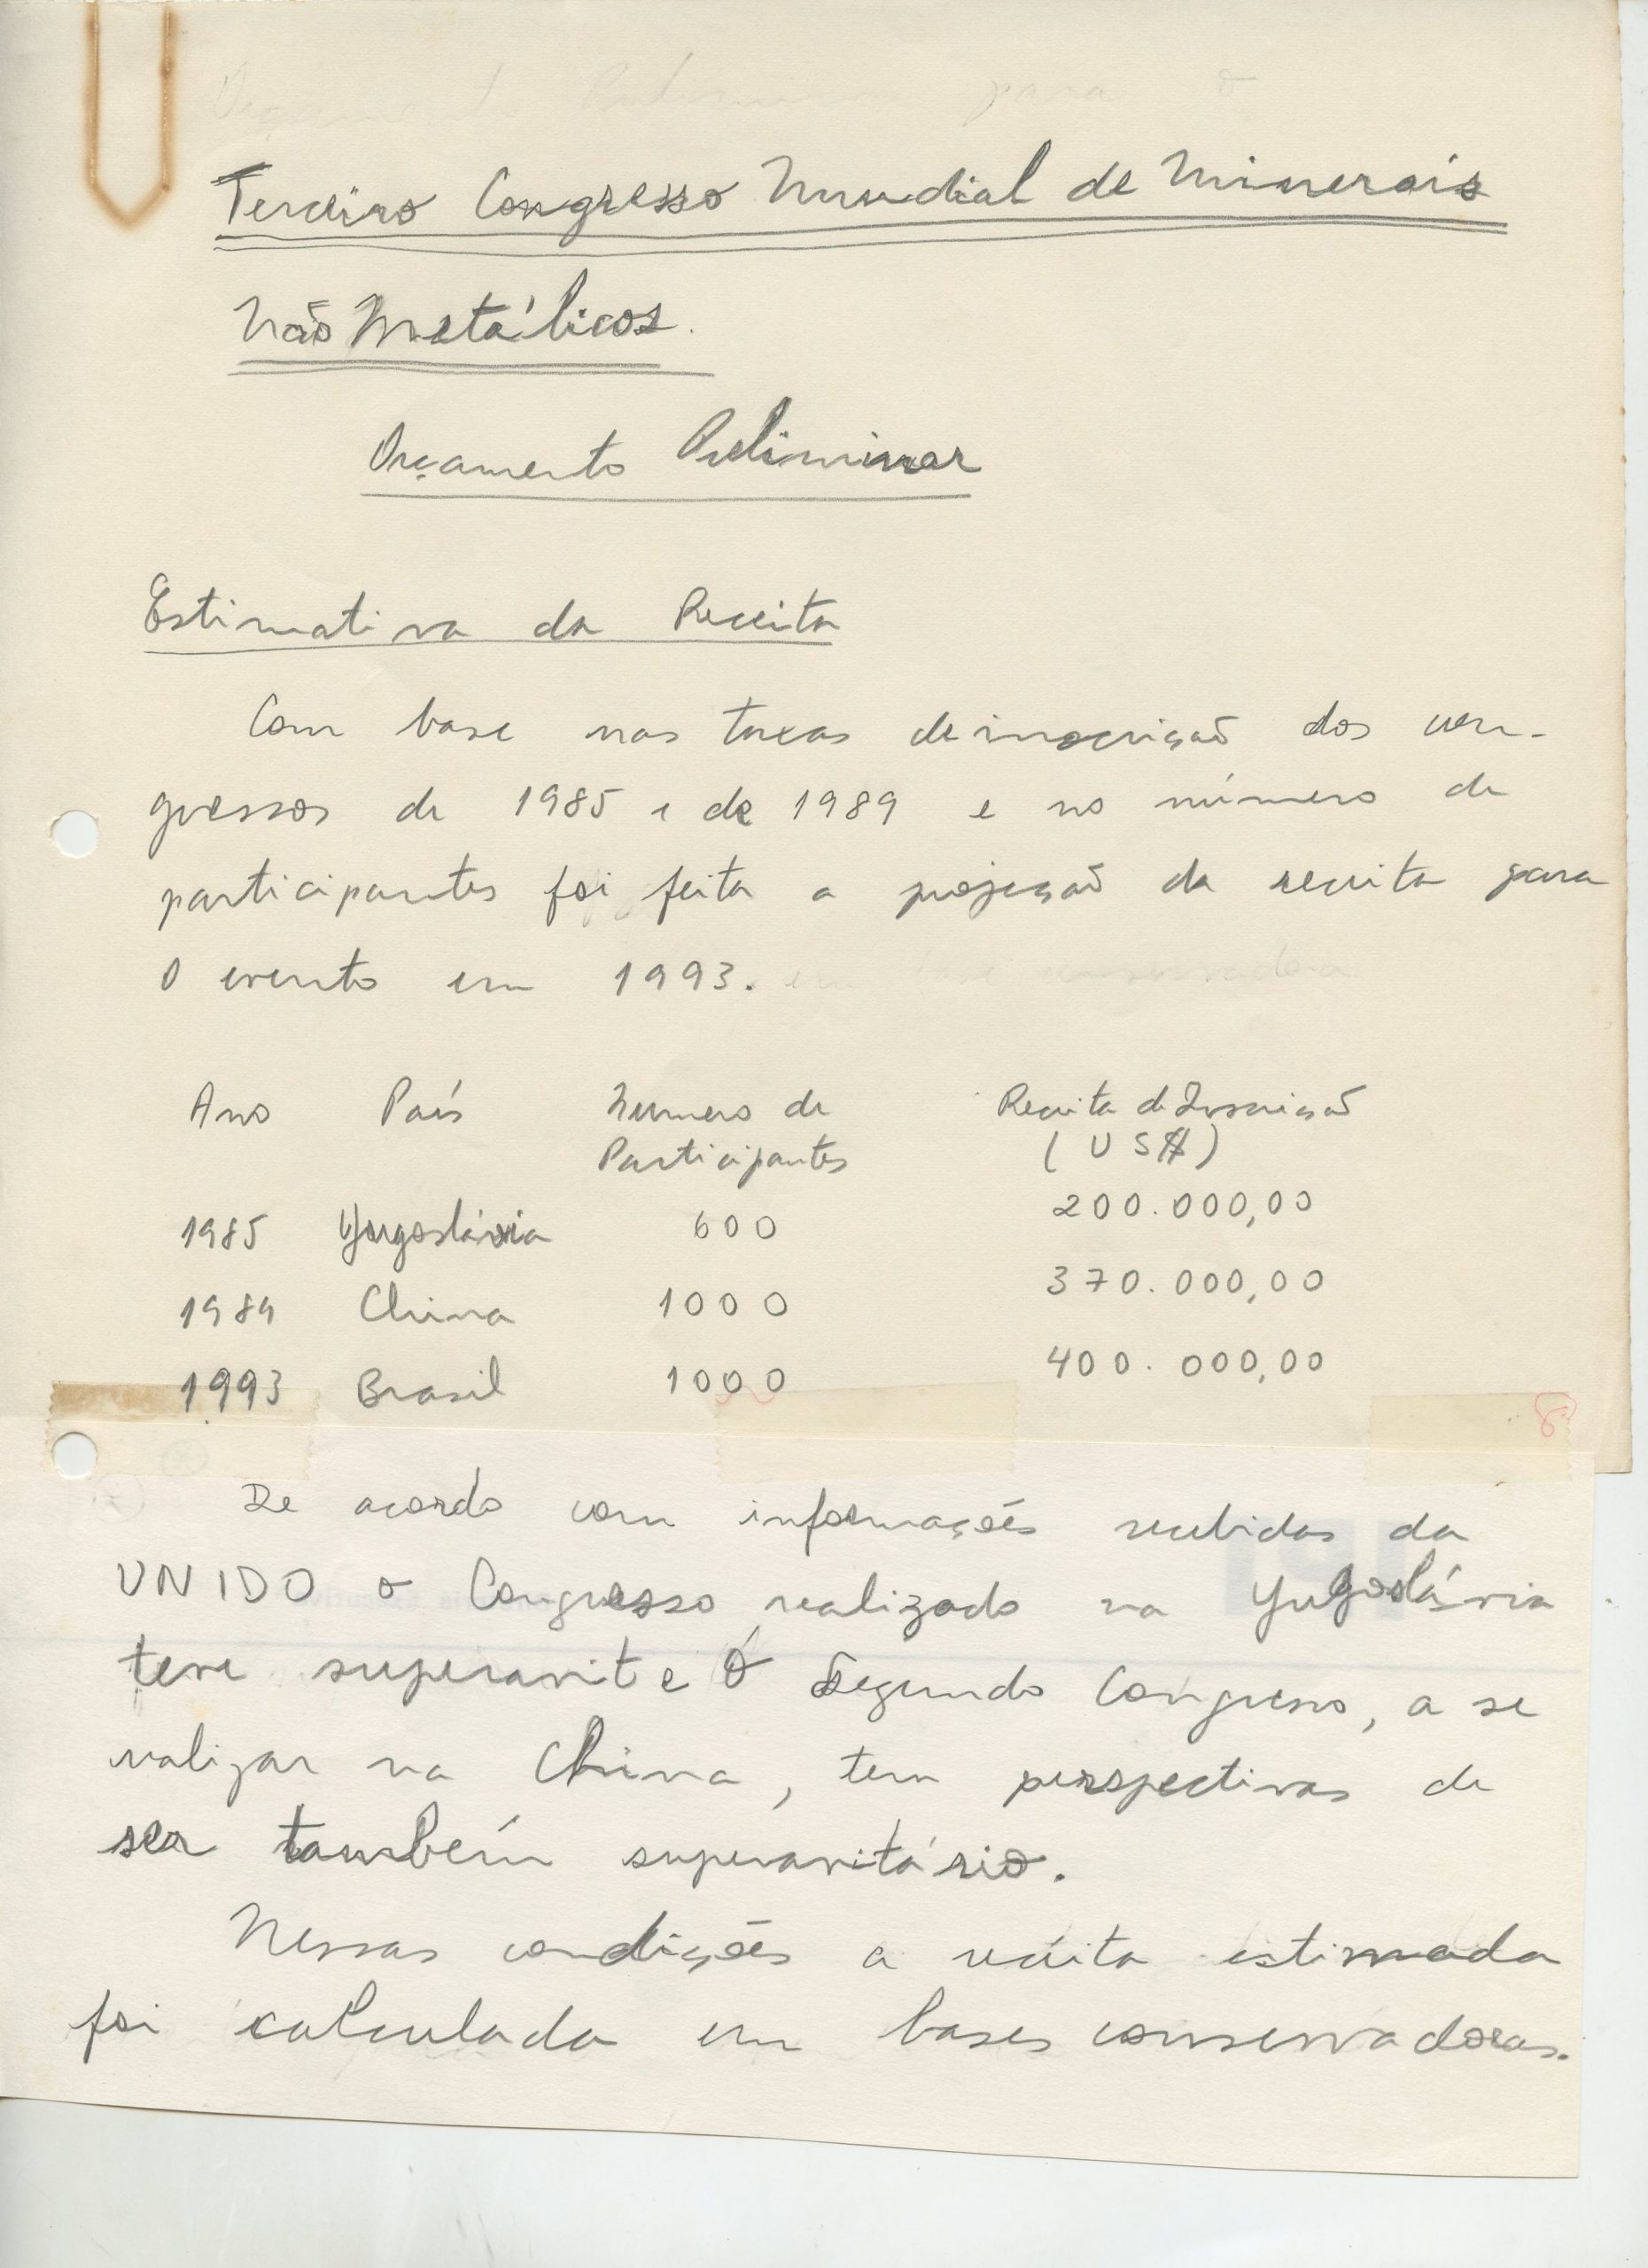 Terceiro Congresso Mundial de Minerais
Não Metálicos.
Orçamento Preliminar
Estimativa da Receita
Com base nas taxas de inscrição dos con-
gressos de 1985 e de 1989 e no número de
participantes foi feita a projeção da receita para
o evento em 1993.
Ano País Número de Receita de Inscrição
Participantes (US$)
1985 Yugoslávia 600 200.000,00
1989 China 1000 370.000,00
1993 Brasil 1000 400.000,00
De acordo com informações recebidas da
UNIDO o Congresso realizado na Yugoslávia
teve superavit e o Segundo Congresso, a se
realizar na China, tem perspectivas de
ser também superavitário.
Nessas condições a receita estimada
foi calculada em bases conservadoras.